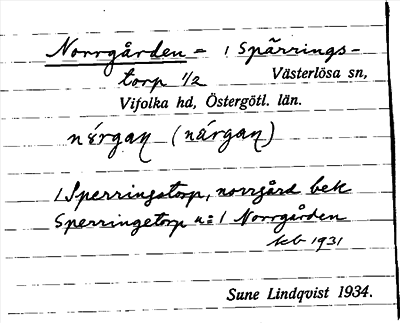 Norrgården = 1 Spärrings-
torp 1/2 Västerlösa sn,
Vifolka hd, Östergötl. län.
nórgaɳ (nárgaɳ)
1 Sperringstorp, norrgård bek
Sperringetorp n:1 Norrgården
kb 1931
Sune Lindqvist 1934.